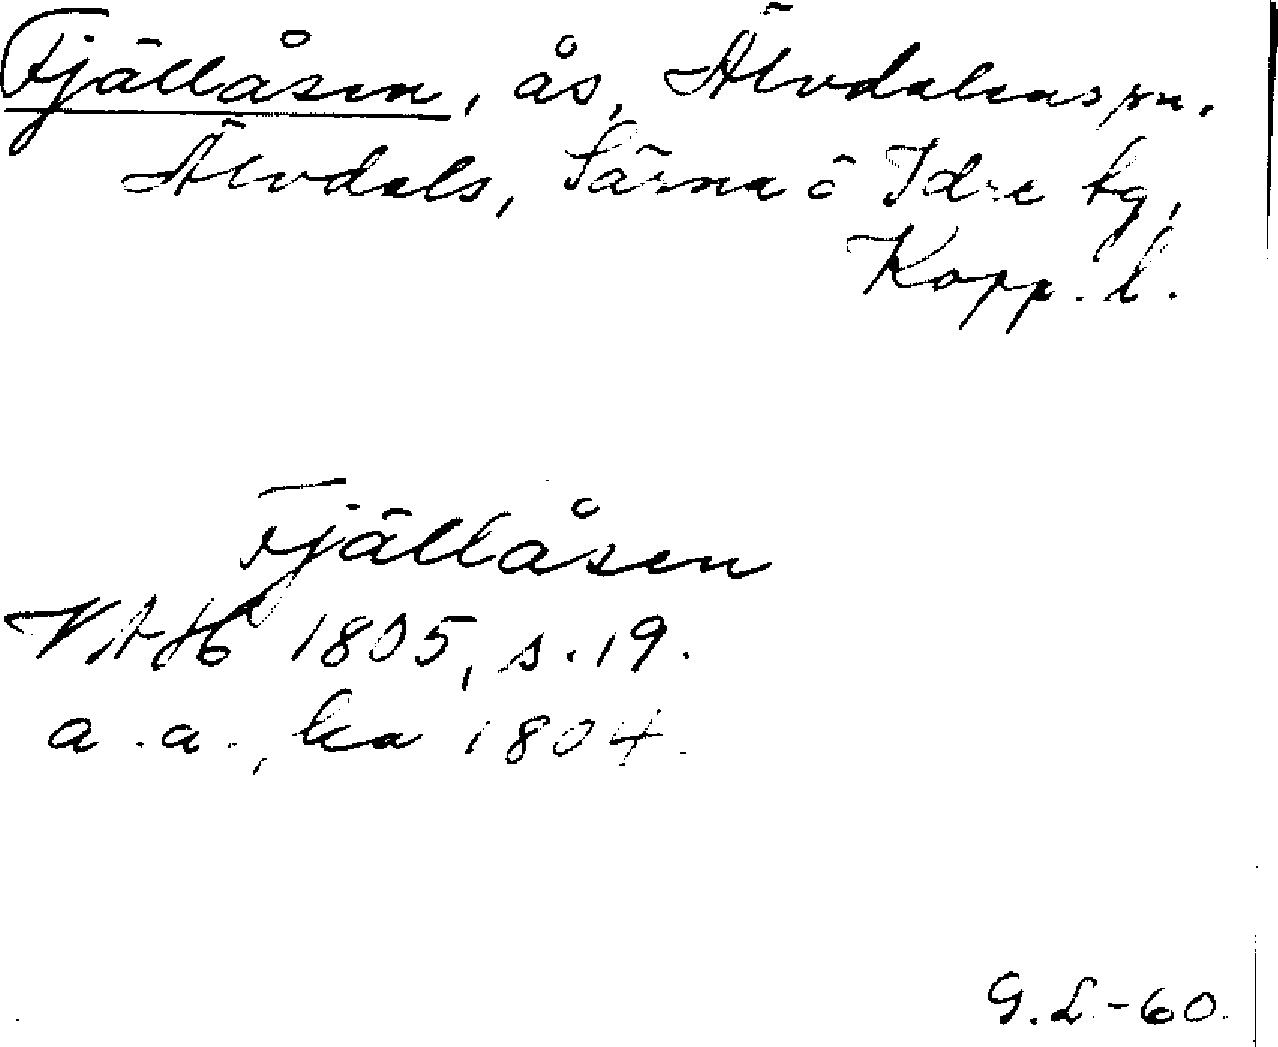 Fjällåsen, ås, Älvdalens sn.
Älvdals, Särna o Idre tg,
Kopp. l.
Fjällåsen
VAH 1805, s. 19.
a. a., ka 1804.
G. L. -60.